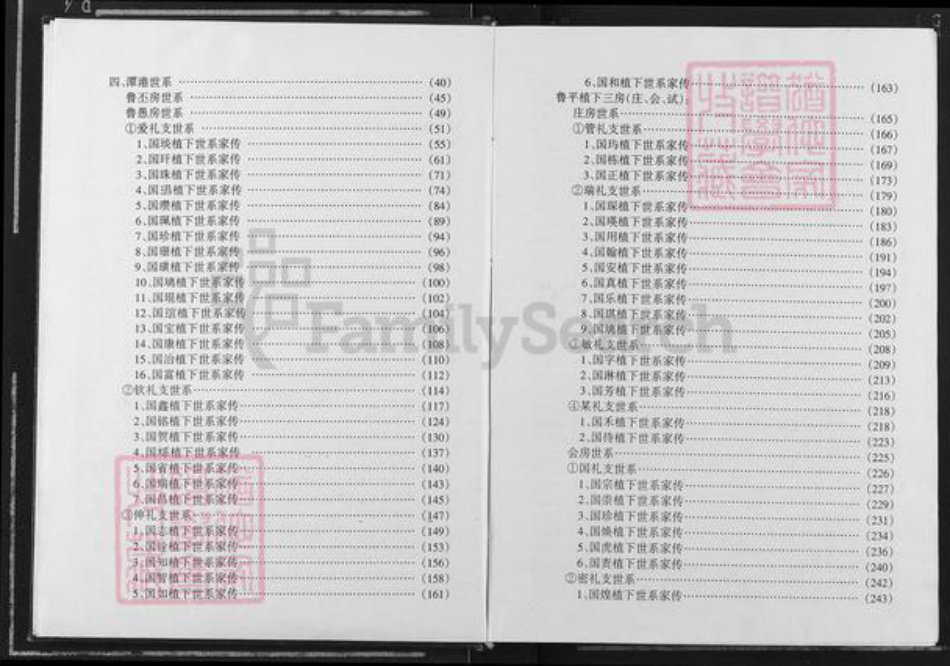 四、潭港世系 (40)
鲁丕房世系 (45)
鲁愚房世系 (49)
①爱礼支世系 (51)
1、国琰植下世系家传 (55)
2、国玕植下世系家传 (61)
3、国珠植下世系家传 (71)
4、国瑫植下世系家传 (74)
5、国瓒植下世系家传 (84)
6、国珮植下世系家传 (89)
7、国珍植下世系家传 (94)
8、国珊植下世系家传 (96)
9、国璜植下世系家传 (98)
10、国璃植下世系家传 (100)
11、国琨植下世系家传 (102)
12、国瑄植下世系家传 (104)
13、国宝植下世系家传 (106)
14、国康植下世系家传 (108)
15、国治植下世系家传 (110)
16、国富植下世系家传 (112)
②钦礼支世系 (114)
1、国鑫植下世系家传 (117)
2、国铭植下世系家传 (124)
3、国贺植下世系家传 (130)
4、国绥植下世系家传 (137)
5、国省植下世系家传 (140)
6、国瑞植下世系家传 (143)
7、国昌植下世系家传 (145)
③伸礼支世系 (147)
1、国志植下世系家传 (149)
2、国铨植下世系家传 (153)
3、国知植下世系家传 (156)
4、国智植下世系家传 (158)
5、国如植下世系家传 (161)
6、国和植下世系家传 (163)
鲁平植下三房(庄、会、试)
庄房世系 (165)
①管礼支世系 (166)
1、国玙植下世系家传 (167)
2、国栋植下世系家传 (169)
3、国正植下世系家传 (173)
②瑞礼支世系 (179)
1、国琛植下世系家传 (180)
2、国瑛植下世系家传 (183)
3、国用植下世系家传 (186)
4、国翰植下世系家传 (191)
5、国安植下世系家传 (194)
6、国真植下世系家传 (197)
7、国乐植下世系家传 (200)
8、国琪植下世系家传 (202)
9、国琥植下世系家传 (205)
③敏礼支世系 (208)
1、国字植下世系家传 (209)
2、国淋植下世系家传 (213)
3、国芳植下世系家传 (216)
④某礼支世系 (218)
1、国禾植下世系家传 (218)
2、国待植下世系家传 (223)
会房世系 (225)
①国礼支世系 (226)
1、国宗植下世系家传 (227)
2、国崇植下世系家传 (229)
3、国珍植下世系家传 (231)
4、国焕植下世系家传 (234)
5、国虎植下世系家传 (236)
6、国贵植下世系家传 (240)
②密礼支世系 (242)
1、国煌植下世系家传 (243)
FamilySearch